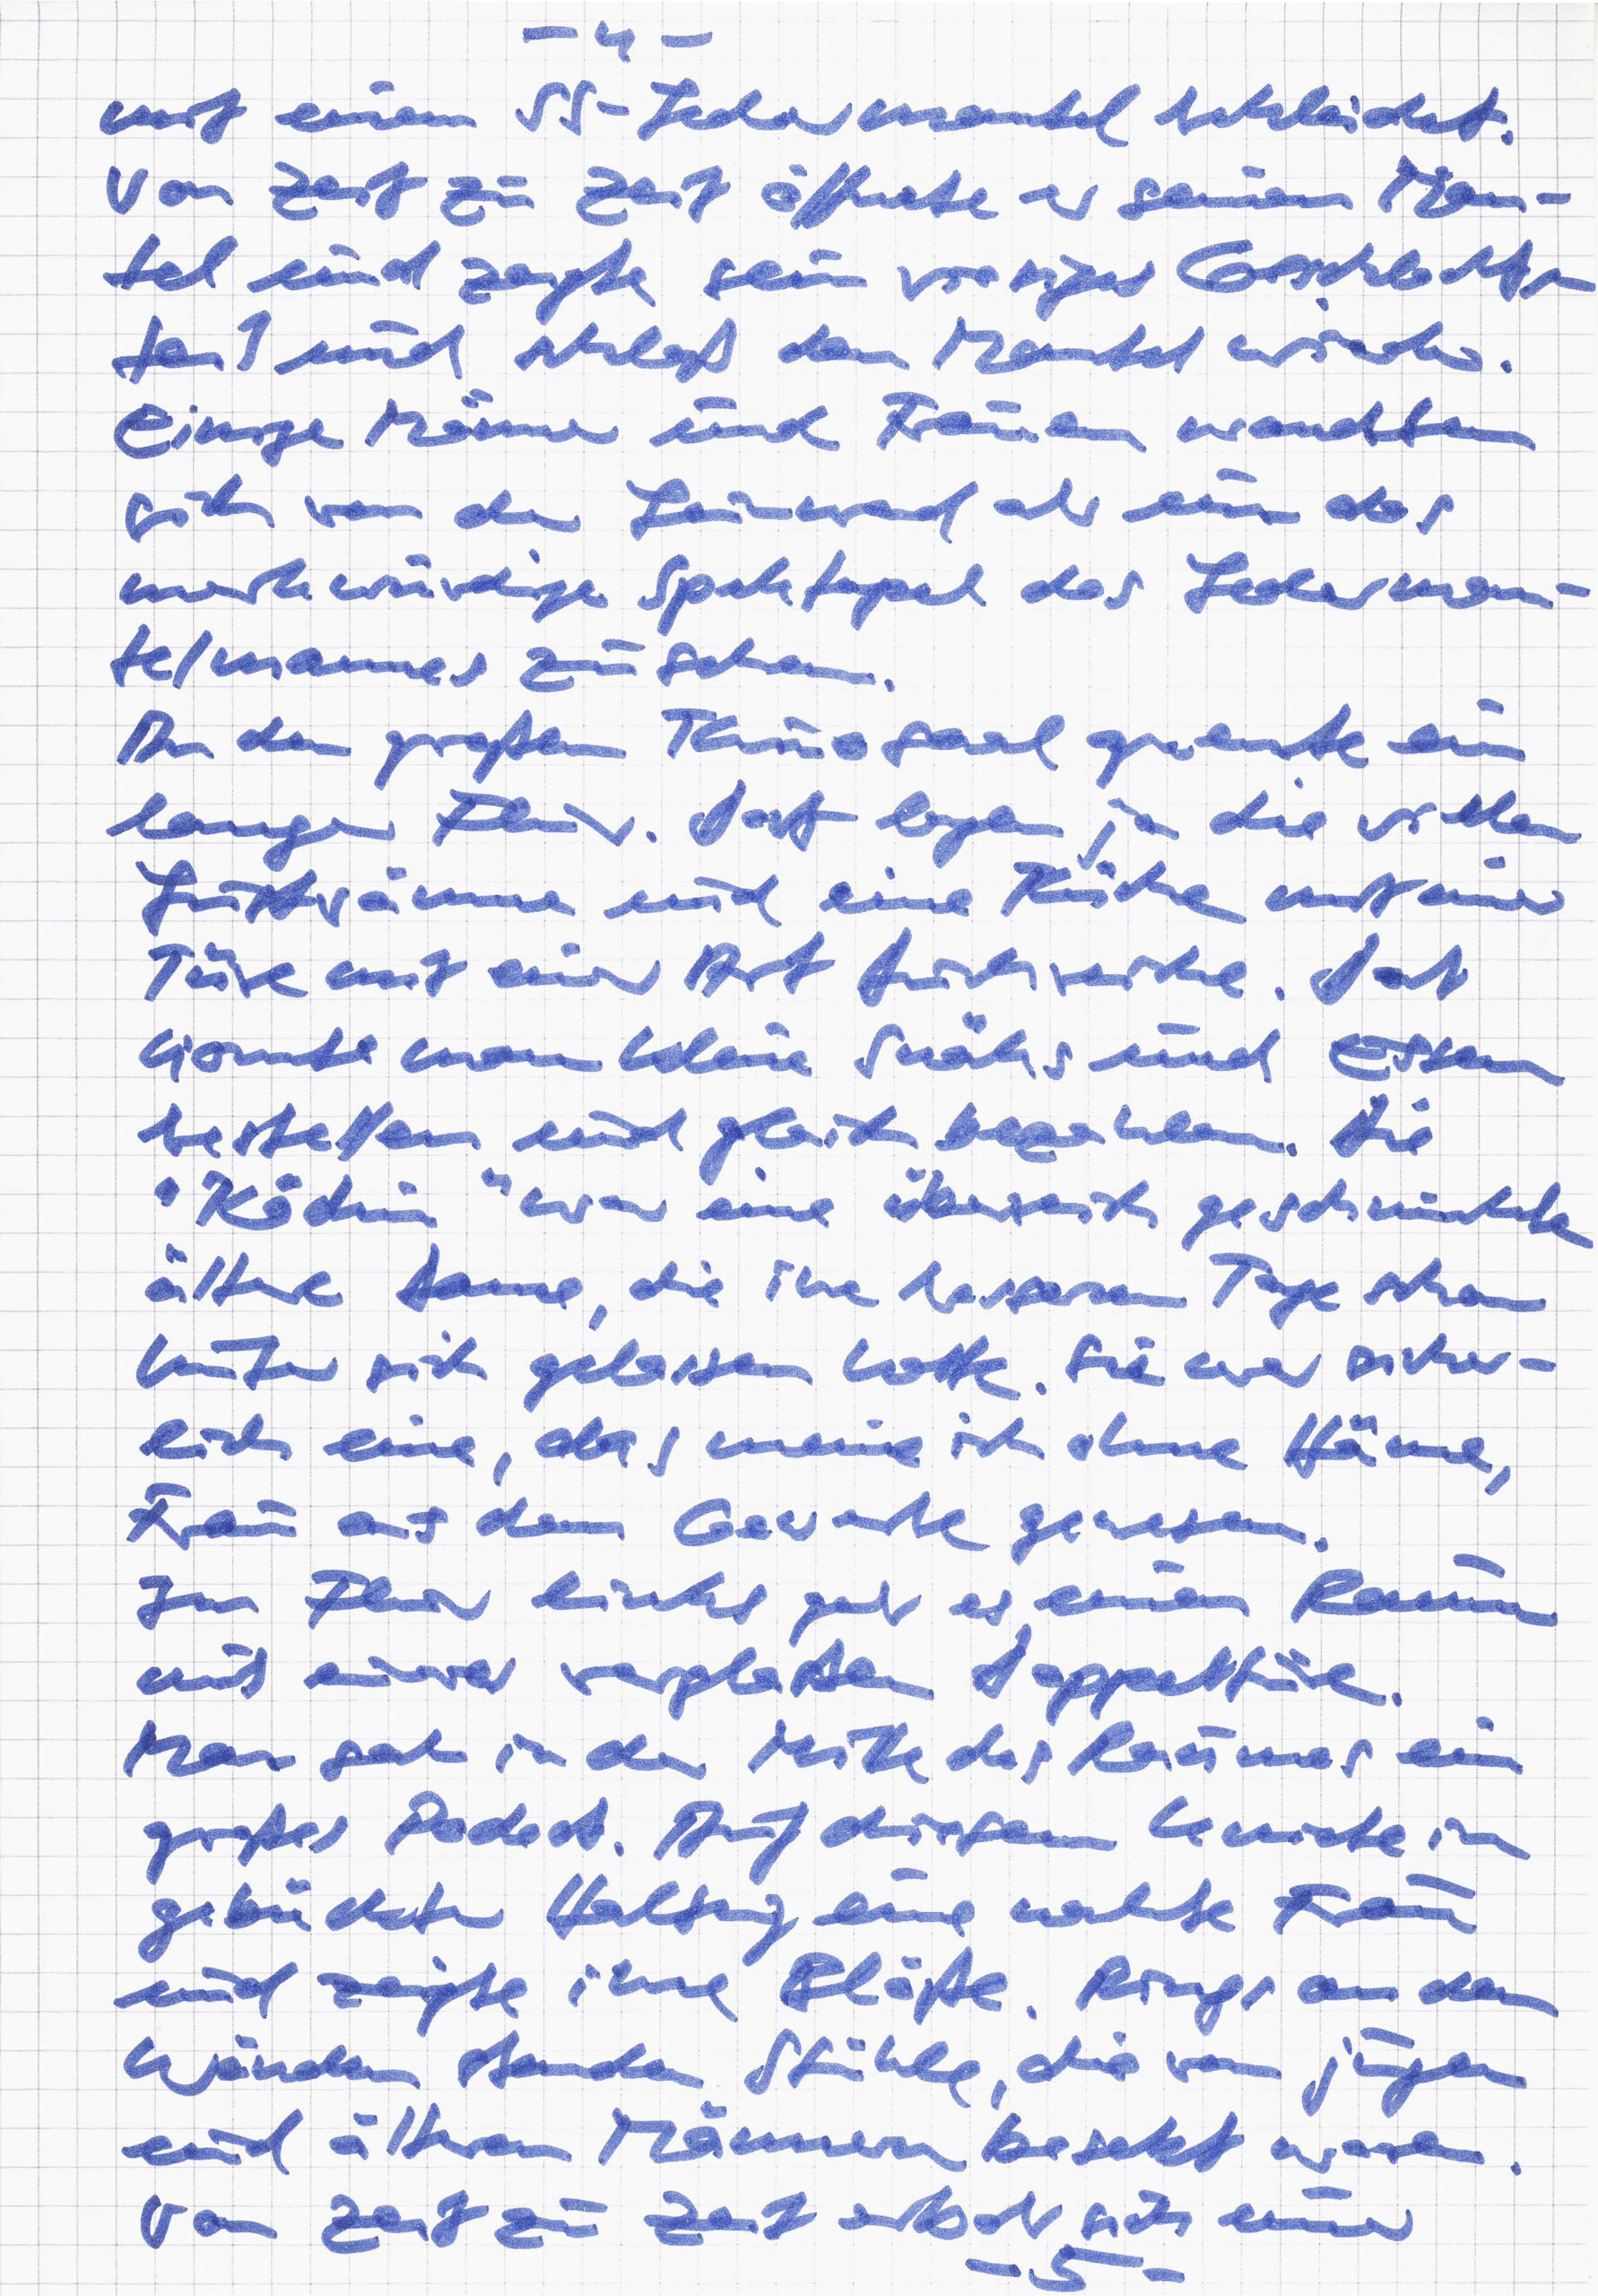 - 4 -
mit einem SS-Ledermantel bekleidet.
Von Zeit zu Zeit öffnete er seinen Man-
tel und zeigte sein riesiges Geschlechts-
teil und schloß den Mantel wieder.
Einige Männer und Frauen wandten
sich von der Leinwand ab um das
merkwürdige Spektakel des Lederman-
telmannes zu sehen.
An den großen Kinosaal grenzte ein
langer Flur. Dort lagen ja die vielen
und eine Küche mit einer
Türe mit einer Art Durchreiche. Dort
konnte man kleine Snäks und Essen
bestellen und gleich bezahlen. Die
"Köchin" war eine überreich geschminkte
ältere Dame, die ihre besseren Tage schon
hinter sich gelassen hatte. Sie war sicher-
lich eine, das meine ich ohne Häme,
Frau aus dem Gewerbe gewesen.
Im Flur links gab es einen Raum
mit einer verglasten Doppeltüre.
Man sah in der Mitte des Raumes ein
großes Podest. Auf diesem kniete in
gebückter Haltung eine nackte Frau
und zeigte ihre Blöße. Rings an den
Wänden standen Stühle, die von jungen
und älteren Männern besetzt waren.
Von Zeit zu Zeit erhob sich einer
- 5 -